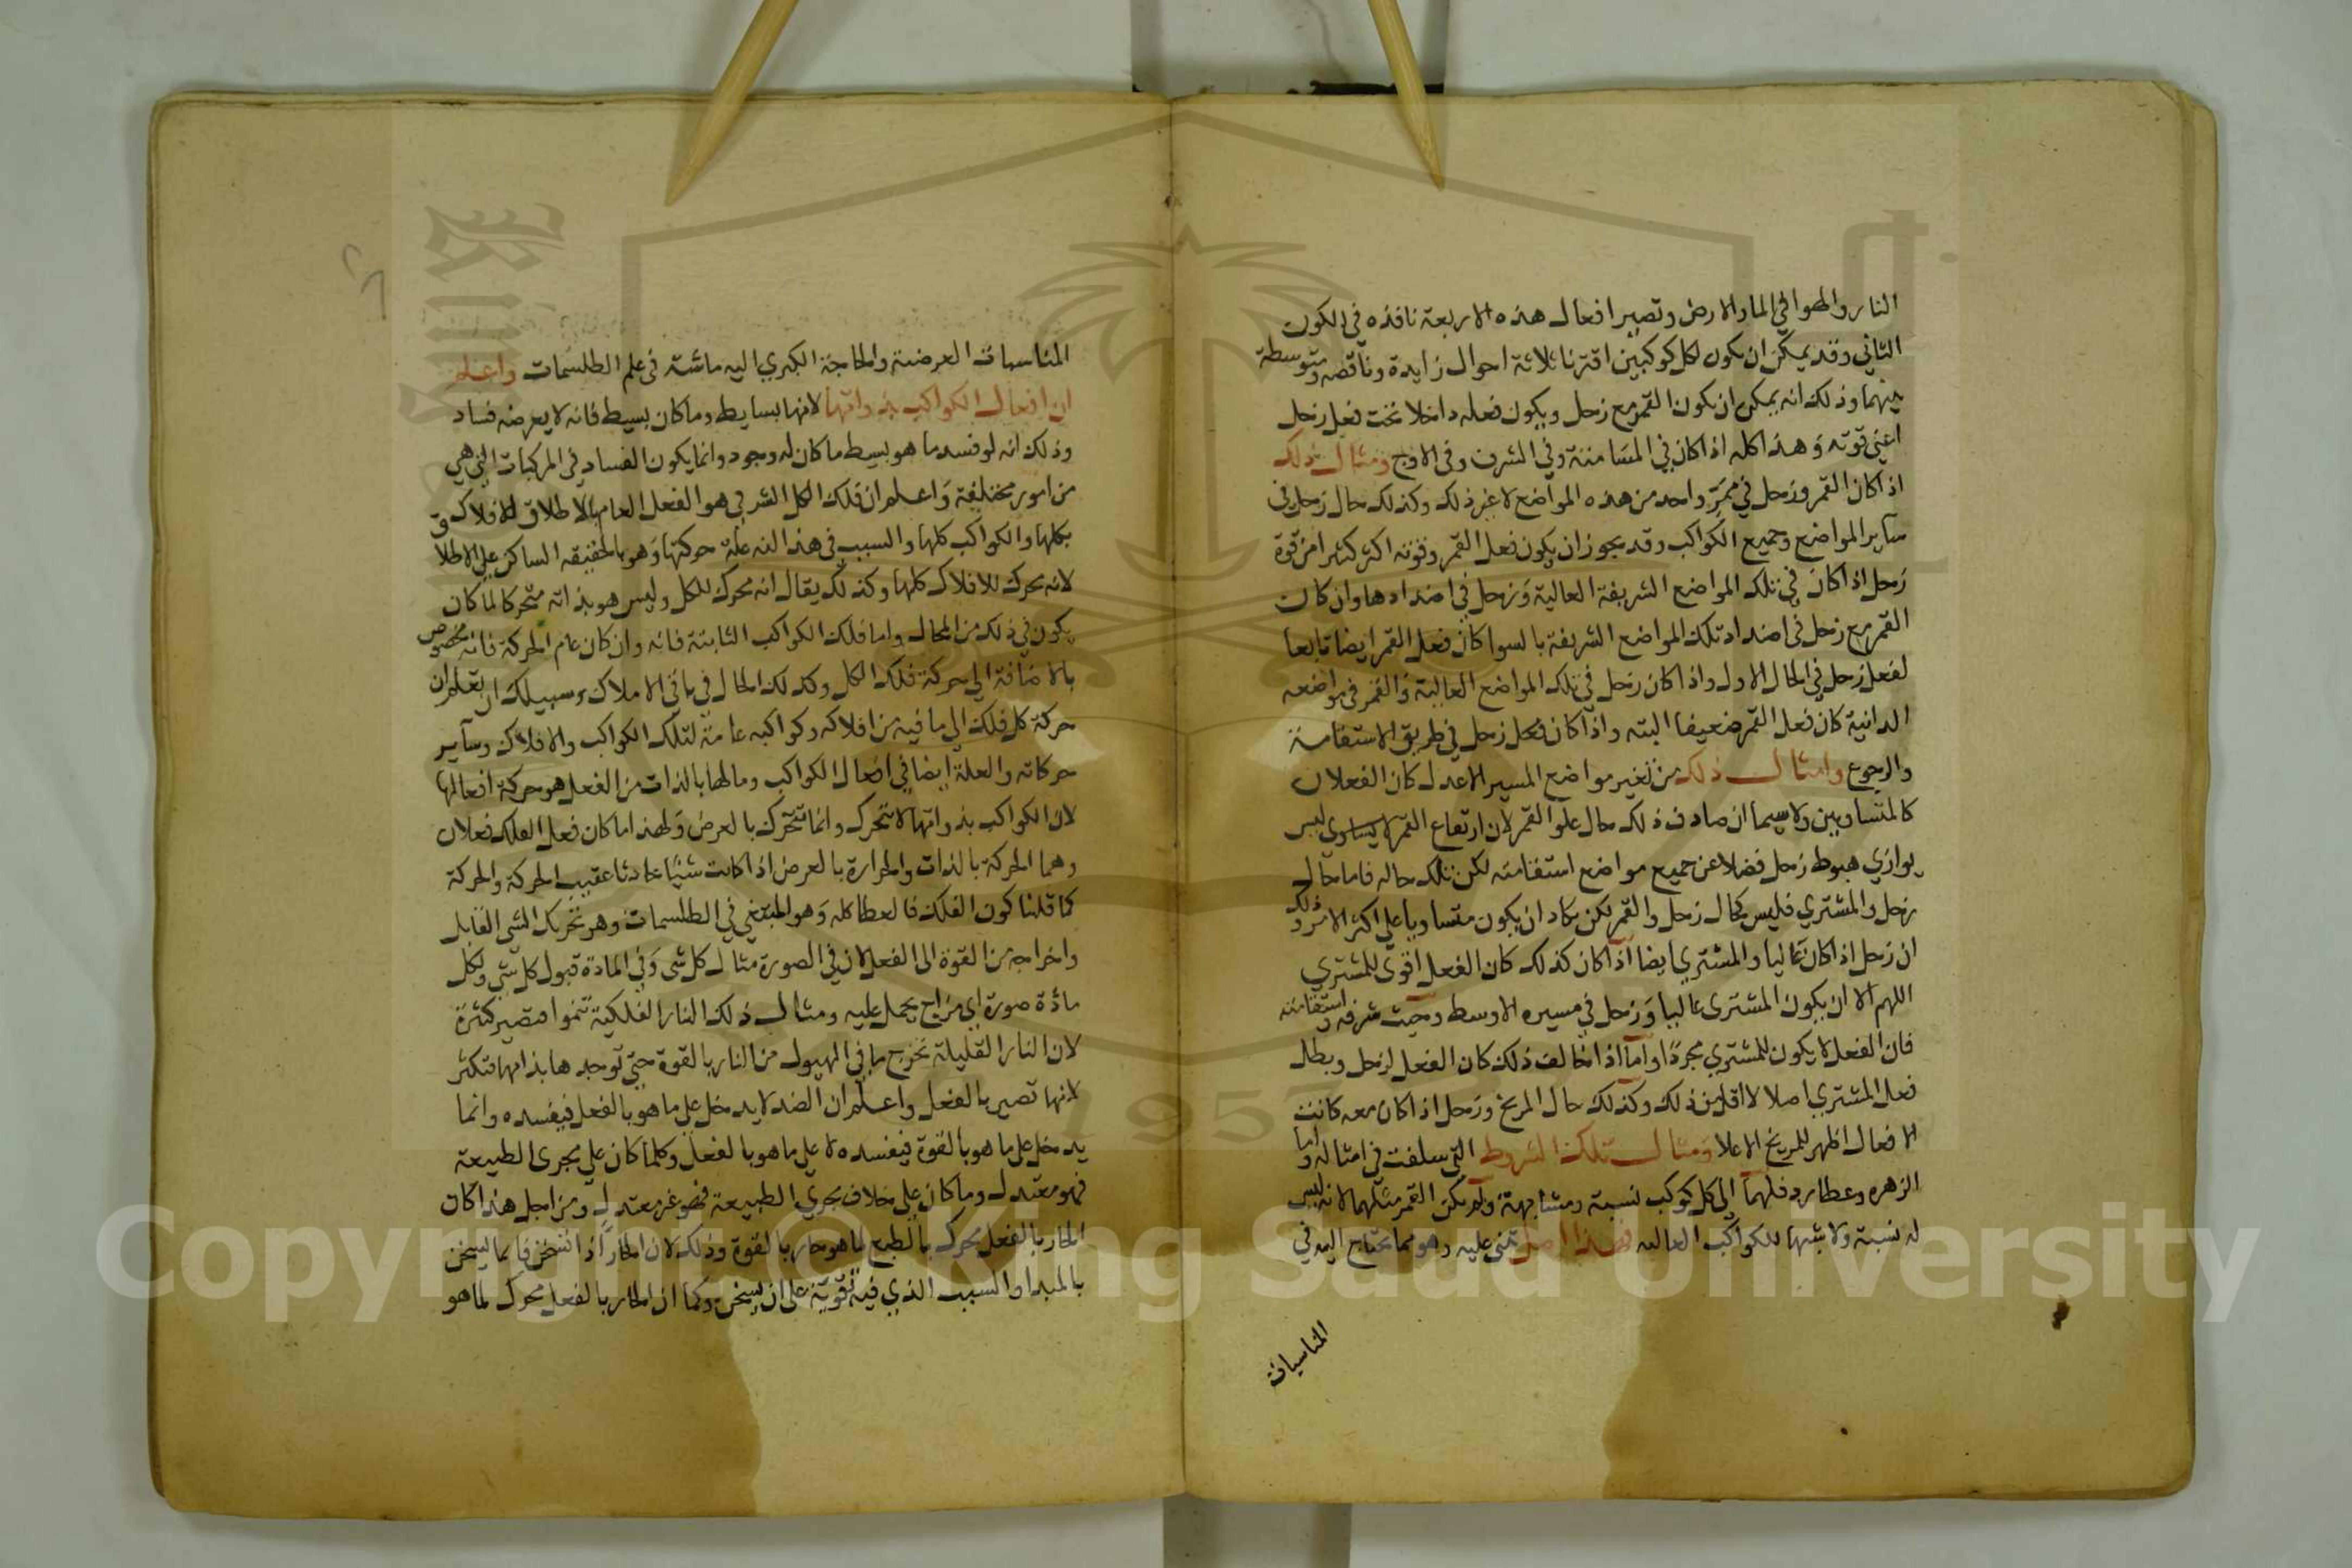 النار والهوا في الما والارض وتصير افعال هذه الاربعة نافذه في الكون
الثاني وقد يمكن ان يكون لكل كوكبين اقترنا ثلاثة احوال زايدة وناقصه ومتوسطة
بينهما وذلك انه يمكن ان يكون القمر مع زحل ويكون فعله داخلا تحت فعل زحل
اعني قوته وهذا كله اذا كان في المسامتة وفي الشرف وفي الاوج ومثال ذلك
اذا كان القمر وزحل في ممر واحد من هذه المواضع لا غير ذلك وكذلك حال زحل في
ساير المواضع وجميع الكواكب وقد يجوز ان يكون فعل القمر وقوته اكثر كثيرا من قوة
زحل اذا كان في تلك المواضع الشريفة العالية وزحل في اضدادها وان كان
القمر مع زحل في اضداد تلك المواضع الشريفة بالسوا كان فعل القمر ايضا تابعا
لفعل زحل في الحال الاول واذا كان زحل في تلك المواضع العالية والقمر في مواضعه
الدانية كان فعل القمر ضعيفا البته واذا كان فعل زحل في طريق الاستقامة
والرجوع وامثال ذلك من تغير مواضع المسير الاعدل كان الفعلان
كالمتساويين ولا سيما ان صادف ذلك حال علو القمر لان ارتفاع القمر لا يساوي ليس
يوازي هبوط زحل فضلا عن جميع مواضع استقامته لكن تلك حاله فاما حال
زحل والمشتري فليس كحال زحل والقمر لكن يكاد ان يكون متساويا على اكثر الامر وذلك
ان زحل اذا كان عاليا والمشتري ايضا اذا كان كذلك كان الفعل اقوى للمشتري
اللهم الا ان يكون المشترى عاليا وزحل في مسيره الاوسط وحيث شرفه واستقامته
فان الفعل لا يكون للمشتري مجردا واما اذا خالف ذلك كان الفعل لزحل وبطل
فعل المشتري اصلا لا اقل من ذلك وكذلك حال المريخ وزحل اذا كان معه كانت
الافعال اظهر للمريخ الاعلا ومثال تلك الشروط التي سلفت في امثاله واما
الزهره وعطارد فلهما الى كل كوكب نسبة ومشابهة ولم يكن القمر مثلهما لانه ليس
له نسبة ولا شبها للكواكب العاليه فهذا اصل تبني عليه وهو مما يحتاج اليه في
المناسبات
المناسبات العرضية والحاجة الكبري اليه ماسة في علم الطلسمات واعلم
ان افعال الكواكب بذواتها لانها بسايط وما كان بسيط فانه لا يعرضه فساد
وذلك انه لو فسد ما هو بسيط ما كان له وجود وانما يكون الفساد في المركبات التي هي
من امور مختلفة واعلم ان فلك الكل الشرفي هو الفعل العام بالاطلاق للافلاك
بكلها والكواكب كلها والسبب في هذا انه علة حركتها وهو بالحقيقه الساكن علي الاطلاق
لانه محرك للافلاك كلها وكذلك يقال انه محرك للكل وليس هو بذاته متحركا لما كان
يكون في ذلك من المحال واما فلك الكواكب الثابتة فانه وان كان عام الحركة فانه مخصوص
بالاضافة الي حركة فلك الكل وكذلك الحال في باقي الاملاك وسبيلك ان تعلم ان
حركة كل فلك الي ما فيه من افلاكه وكواكبه عامة لتلك الكواكب والافلاك وساير
حركاته والعلة ايضا في افعال الكواكب وما لها بالذات من الفعل هو حركة افعالها
لان الكواكب بذواتها لا تتحرك وانما تتحرك بالعرض ولهذا ما كان فعل الفلك فعلان
وهما الحركة بالذات والحرارة بالعرض اذا كانت شيا حادثا عقيب الحركة والحركة
كما قلنا كون الفلك فالعطا كله وهو المبتغي في الطلسمات وهو تحريك الشي القابل
واخراجه من القوة الى الفعل لان في الصورة مثال كل شي وفي المادة قبول كل شي ولكل
مادة صورة اي مزاج يحمل عليه ومثال ذلك النار الفلكية تنموا فتصير كثيرة
لان النار القليلة تخرج ما في الهيول من النار بالقوة حتي توجدها بذاتها فتكثر
لانها تصير بالفعل واعلم ان الضد لا يدخل علي ما هو بالفعل فيفسده وانما
يدخل علي ما هو بالقوة فيفسده لا علي ما هو بالفعل وكلما كان علي مجرى الطبيعة
فهو معتدل وما كان علي خلاف مجري الطبيعة فهو غير معتدل ومن اجل هذا كان
الحار بالفعل يحرك بالطبع ما هو حار بالقوة وذلك لان الحار اذا اسخن فانما يسخن
بالمبدا والسبب الذي فيه قوية علي ان يسخن وكما ان الحار بالفعل محرك لما هو
Copyright © King Saud University
1957